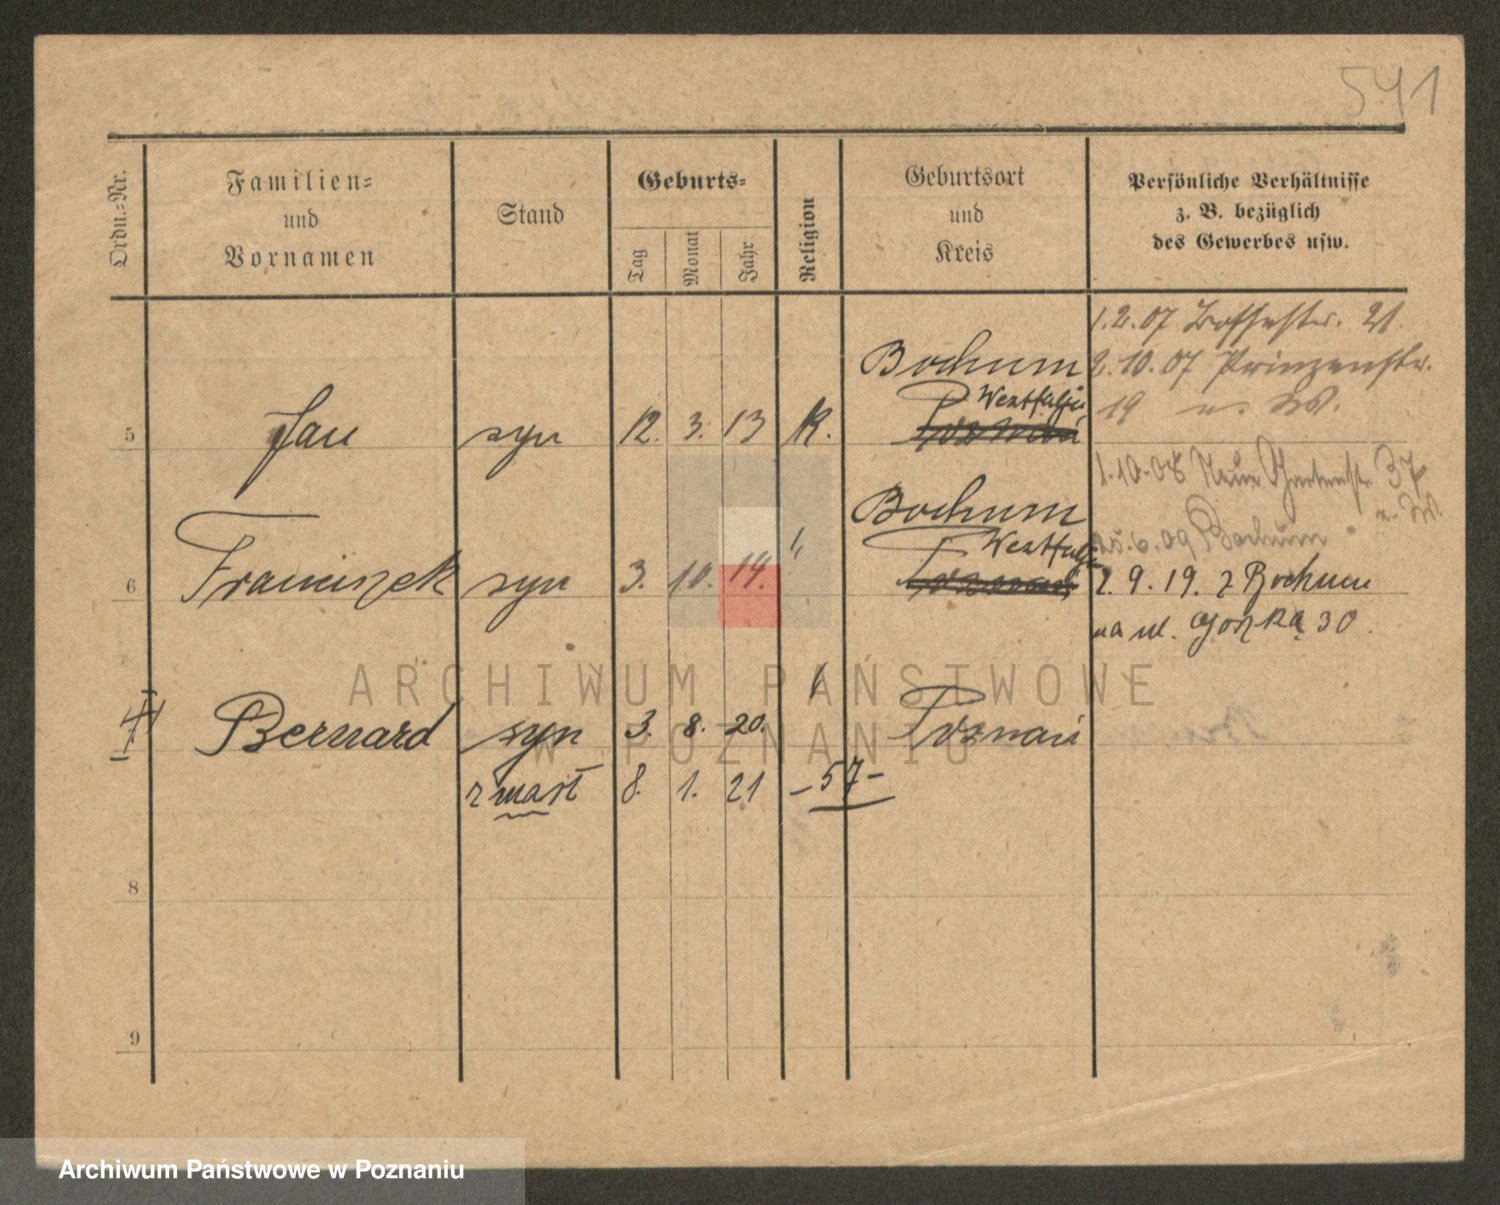 541
Ordn.-Nr.
Familien-
und
Vornamen
Stand
Geburts-
Tag
Monat
Jahr
Religion
Geburtsort
und
Kreis
Persönliche Verhältnisse
z. B. bezüglich
des Gewerbes usw.
1.2.07 21.
2.10.07 Prinzenstr.
19
5 Jan syn 12. 3. 13 K. Bochum
Westfalja
Poznań
1.10.08 Neue Gartenstr. 37
6 Franciszek syn 3. 10. 14. " Bochum
Westfalja
Poznań
25.6.09 Bochum
2.9.19. z Bochum
na ul. 30.
Bernard syn 3. 8. 20. Poznań
zmarł 8. 1. 21 – 57 –
8
9
ARCHIWUM PAŃSTWOWE
W POZNANIU
Archiwum Państwowe w Poznaniu